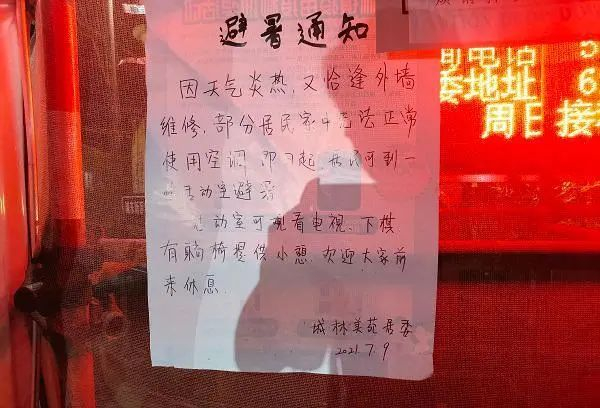 避暑通知
因天气炎热,又恰逢外墙
维修,部分居民家中无法正常
使用空调,即日起,居民可到一
活动室避暑
活动室可观看电视、下棋,
有躺椅提供小憩,欢迎大家前
来休息.
城林美苑居委
2021.7.9
电话 5
委地址 6
周日 接